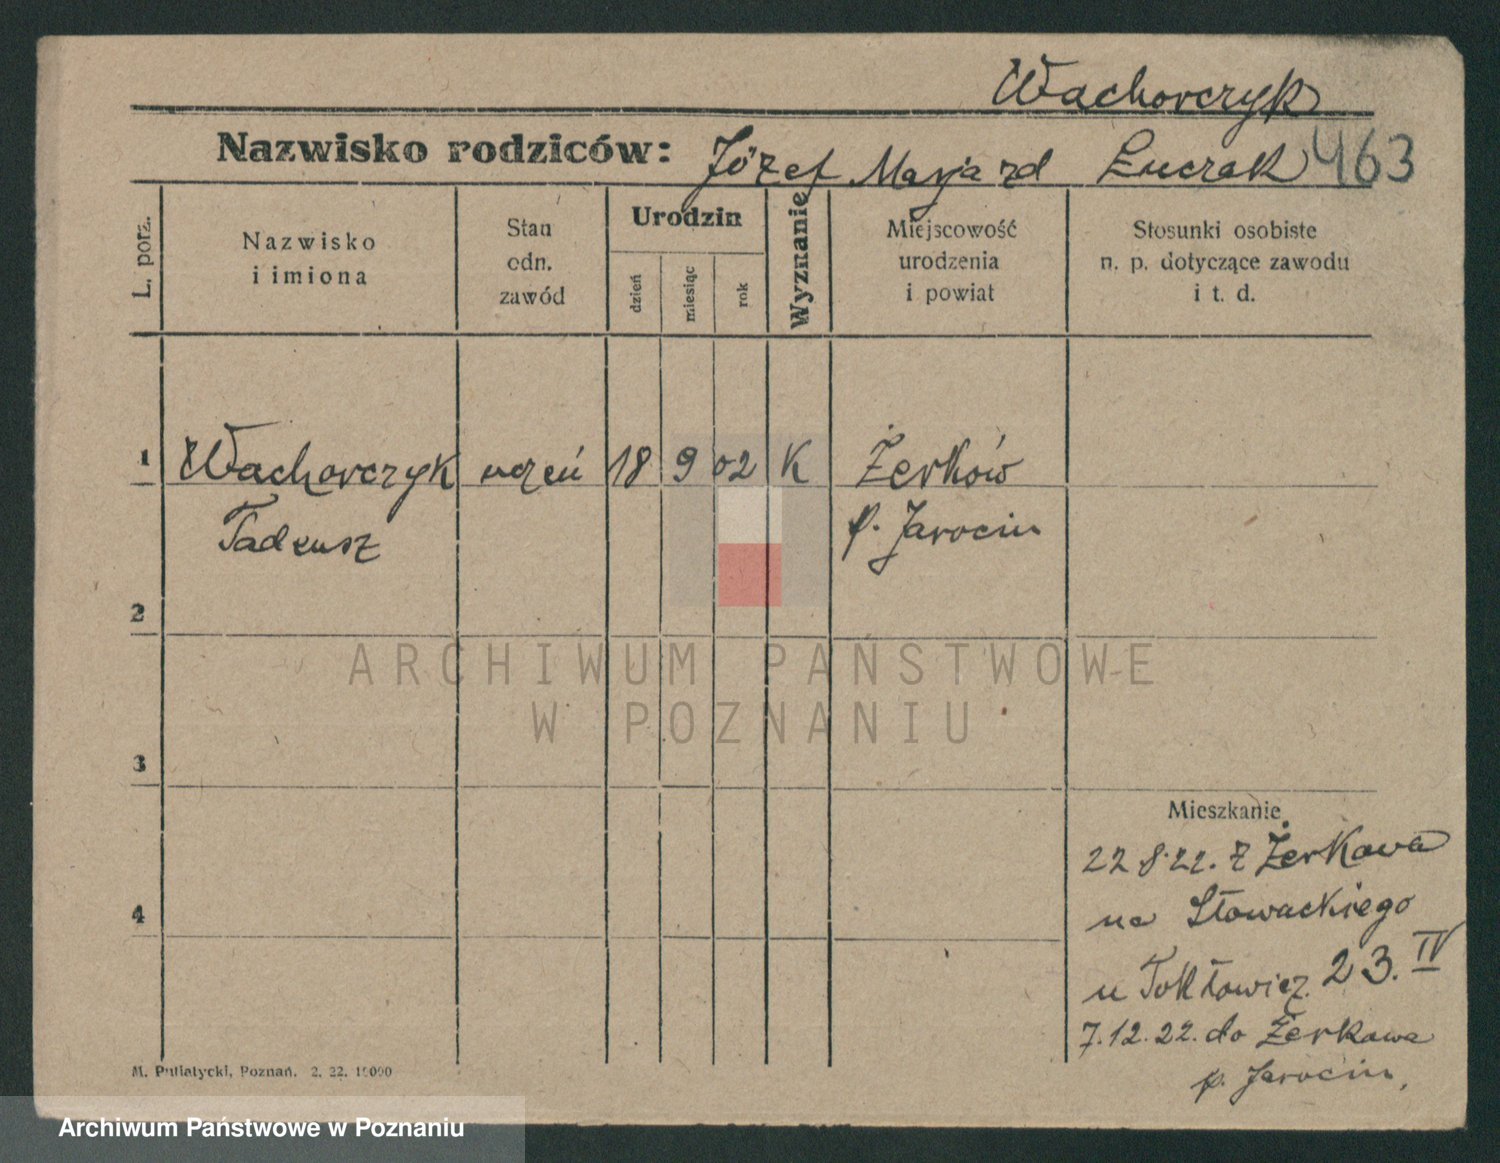 Wachorczyk
Nazwisko rodziców: Józef Marja zd Łuczak 463
L. porz.
Nazwisko
i imiona
Stan
odn.
zawód
Urodzin
dzień
miesiąc
rok
Wyznanie
Miejscowość
urodzenia
i powiat
Stosunki osobiste
n. p. dotyczące zawodu
i t. d.
1 Wachorczyk uczeń 18 9 02 K Żerków
Tadeusz p. Jarocin
2
ARCHIWUM PAŃSTWOWE
W POZNANIU
3
Mieszkanie
22 8.22. z Żerkowa
na Słowackiego
4
u 23. IV
7.12.22. do Żerkowa
p. Jarocin,
M. Putiatycki, Poznań. 2. 22. 10000
Archiwum Państwowe w Poznaniu